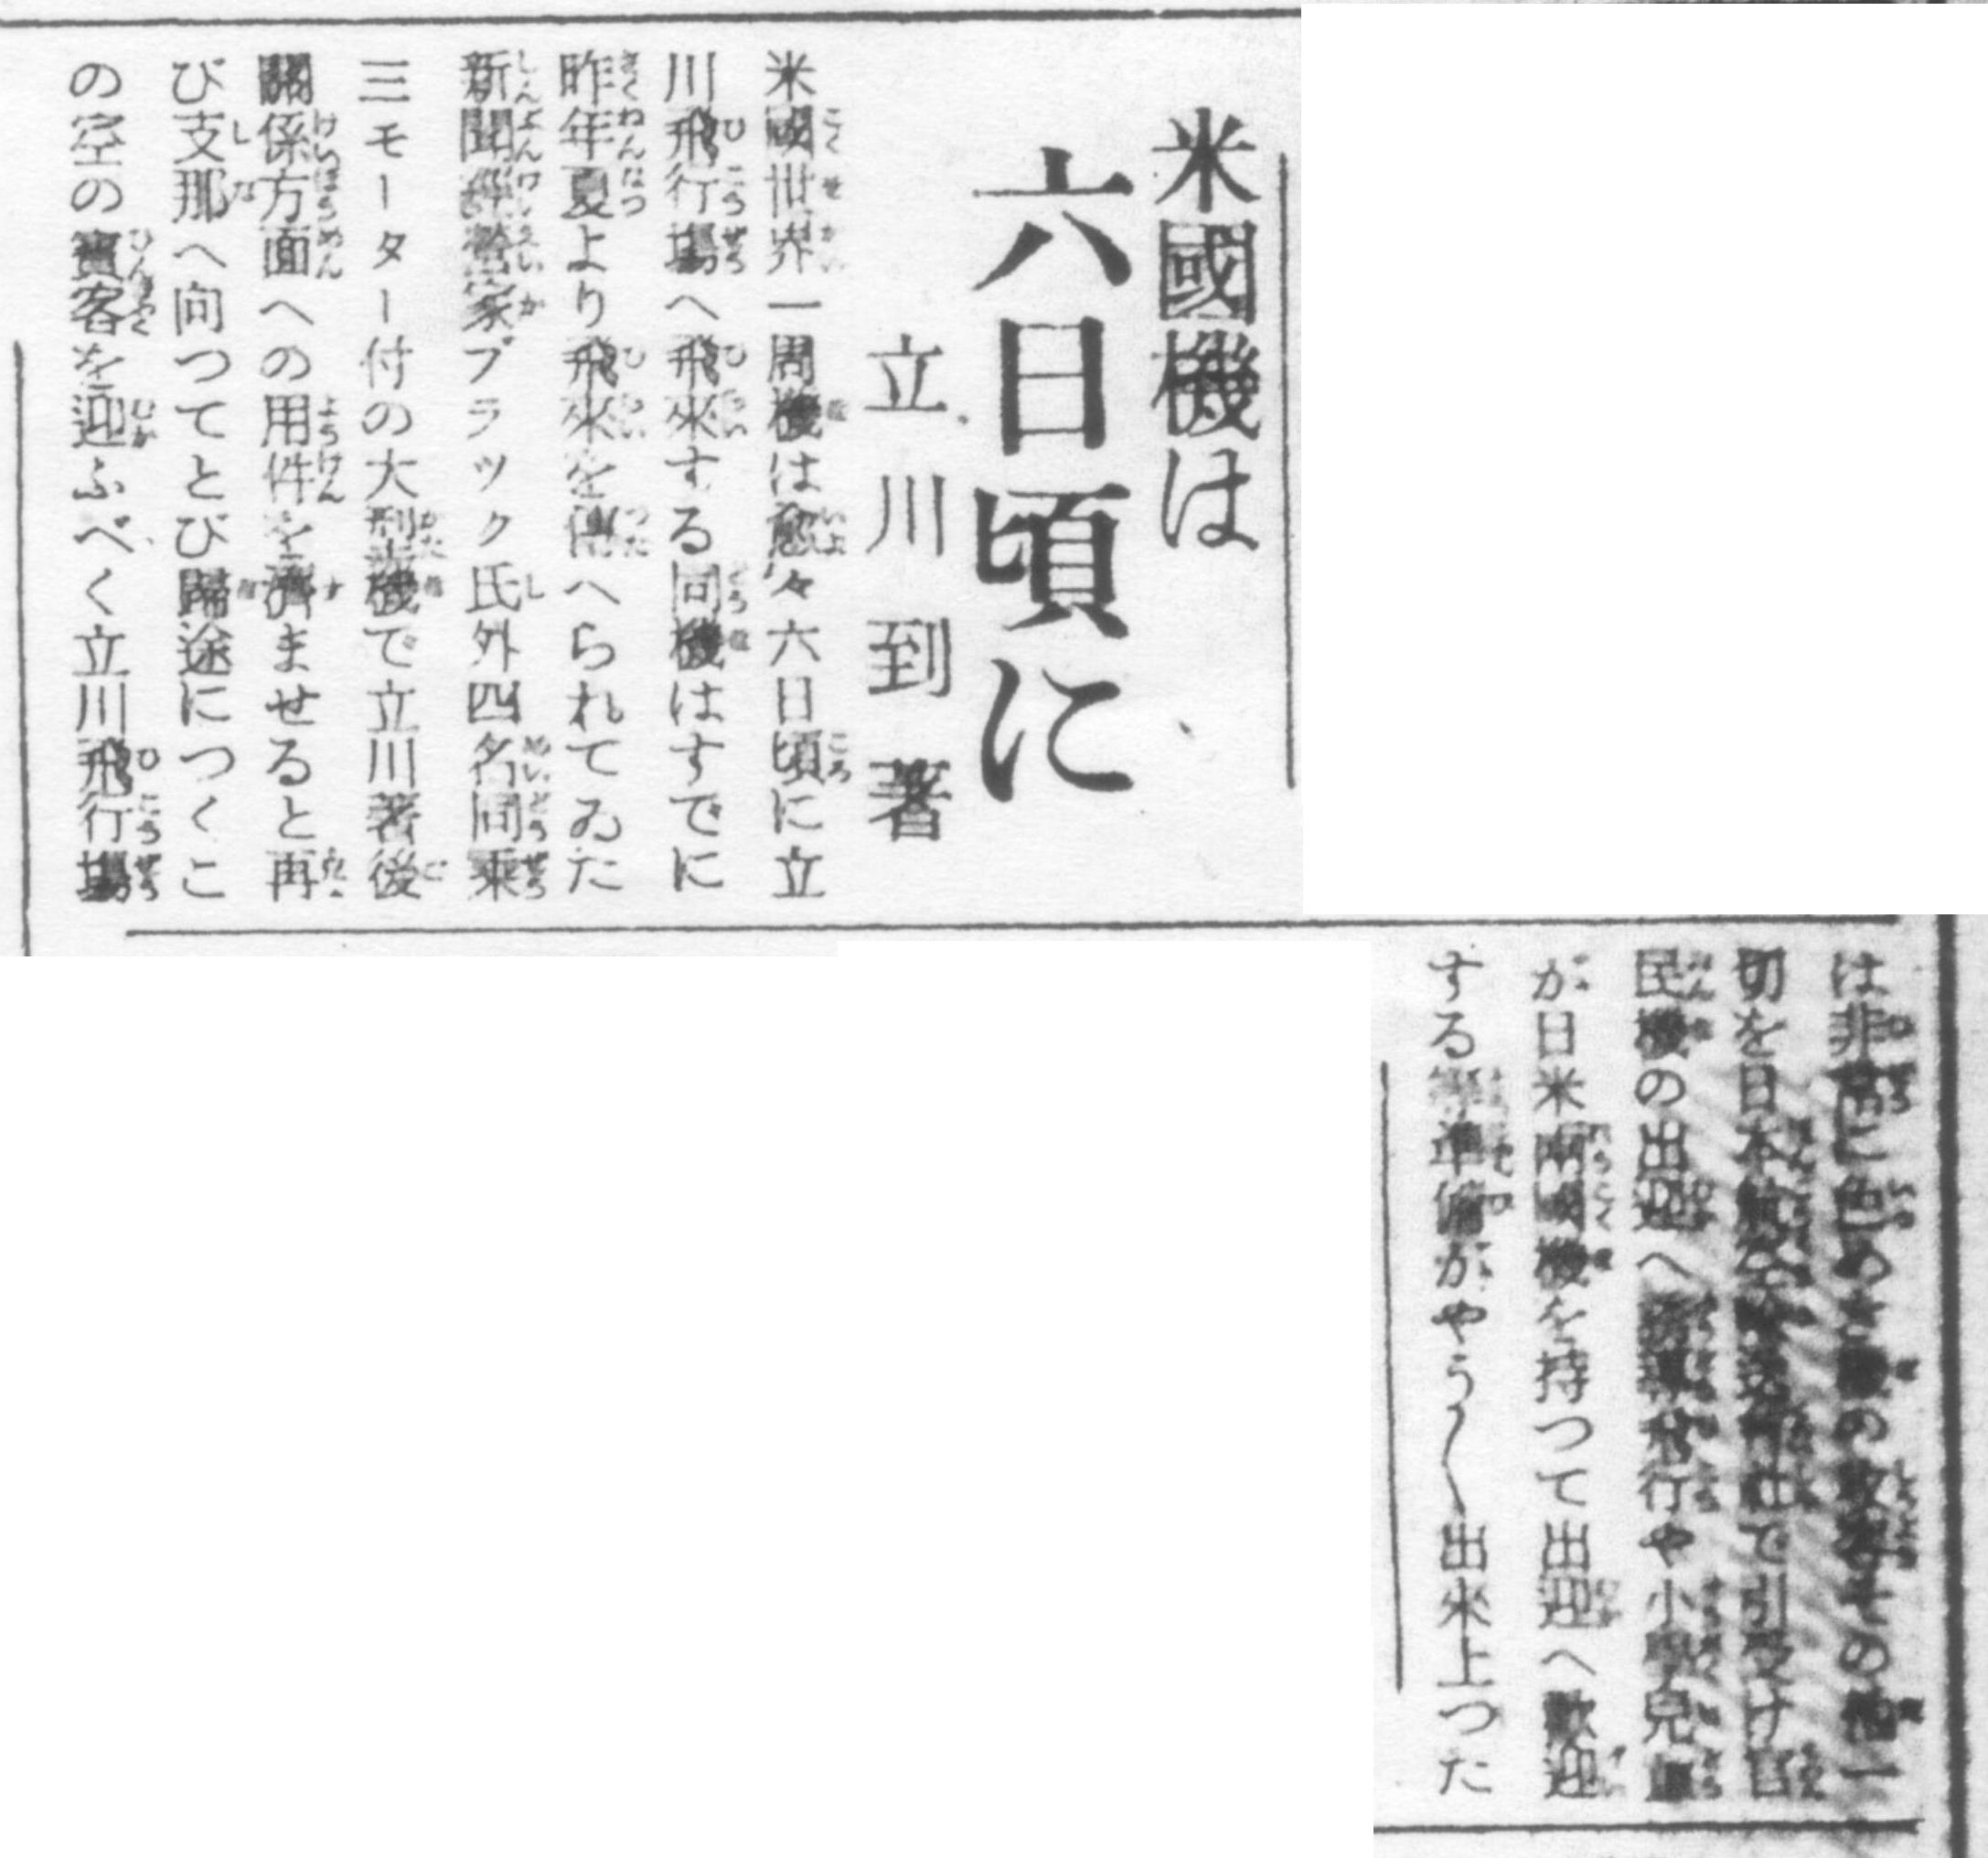 米國機は
六日頃に
立川到著
米國世界一周機は愈々六日頃に立
川飛行場へ飛來する同機はすでに
昨年夏より飛來を傳へられてゐた
新聞經營家ブラック氏外四名同乘
三モーター付の大型機で立川著後
關係方面への用件を濟ませると再
び支那へ向つてとび歸途につくこ
の空の賓客を迎ふべく立川飛行場
は非常に色めき機の繋留その他一
切を日本航空輸送會社で引受け官
民機の出迎へ誘導飛行や小學兒童
が日米兩國機を持つて出迎へ歡迎
する等準備がやう〱出來上つた